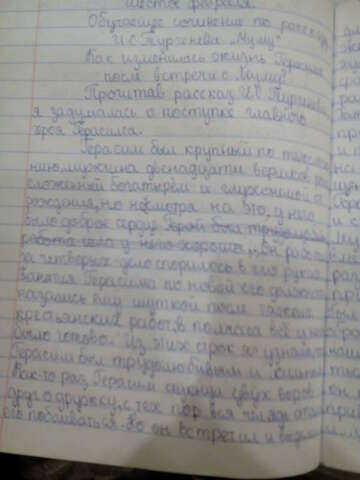 шестое февраля.
Обучающее сочинение по рассказу
И.С. Тургенева „Муму"
Как изменилась жизнь Герасима
после встречи с Муму?
Прочитав рассказ И.С. Тургенева
я задумалась о поступке главного
героя Герасима.
Герасим был крупный по
мужчина двенадцати вершков
сложенный богатырём и глухонемой от
рождения, но несмотря на это, у него
было доброе сердце. Герой был
работа шла у него хорошо „Он работал
за четверых - дело спорилось в его руках
занятия Герасима по новой его должности
казались ему шуткой после тяжких
крестьянских работ, в полчаса всё у него
было готово." Из этих строк я узнала
Герасим был трудолюбивым и
Как-то раз, Герасим двух воров
друг о дружку, с тех пор вся челядь стала
его побаиваться. Но он встретил и